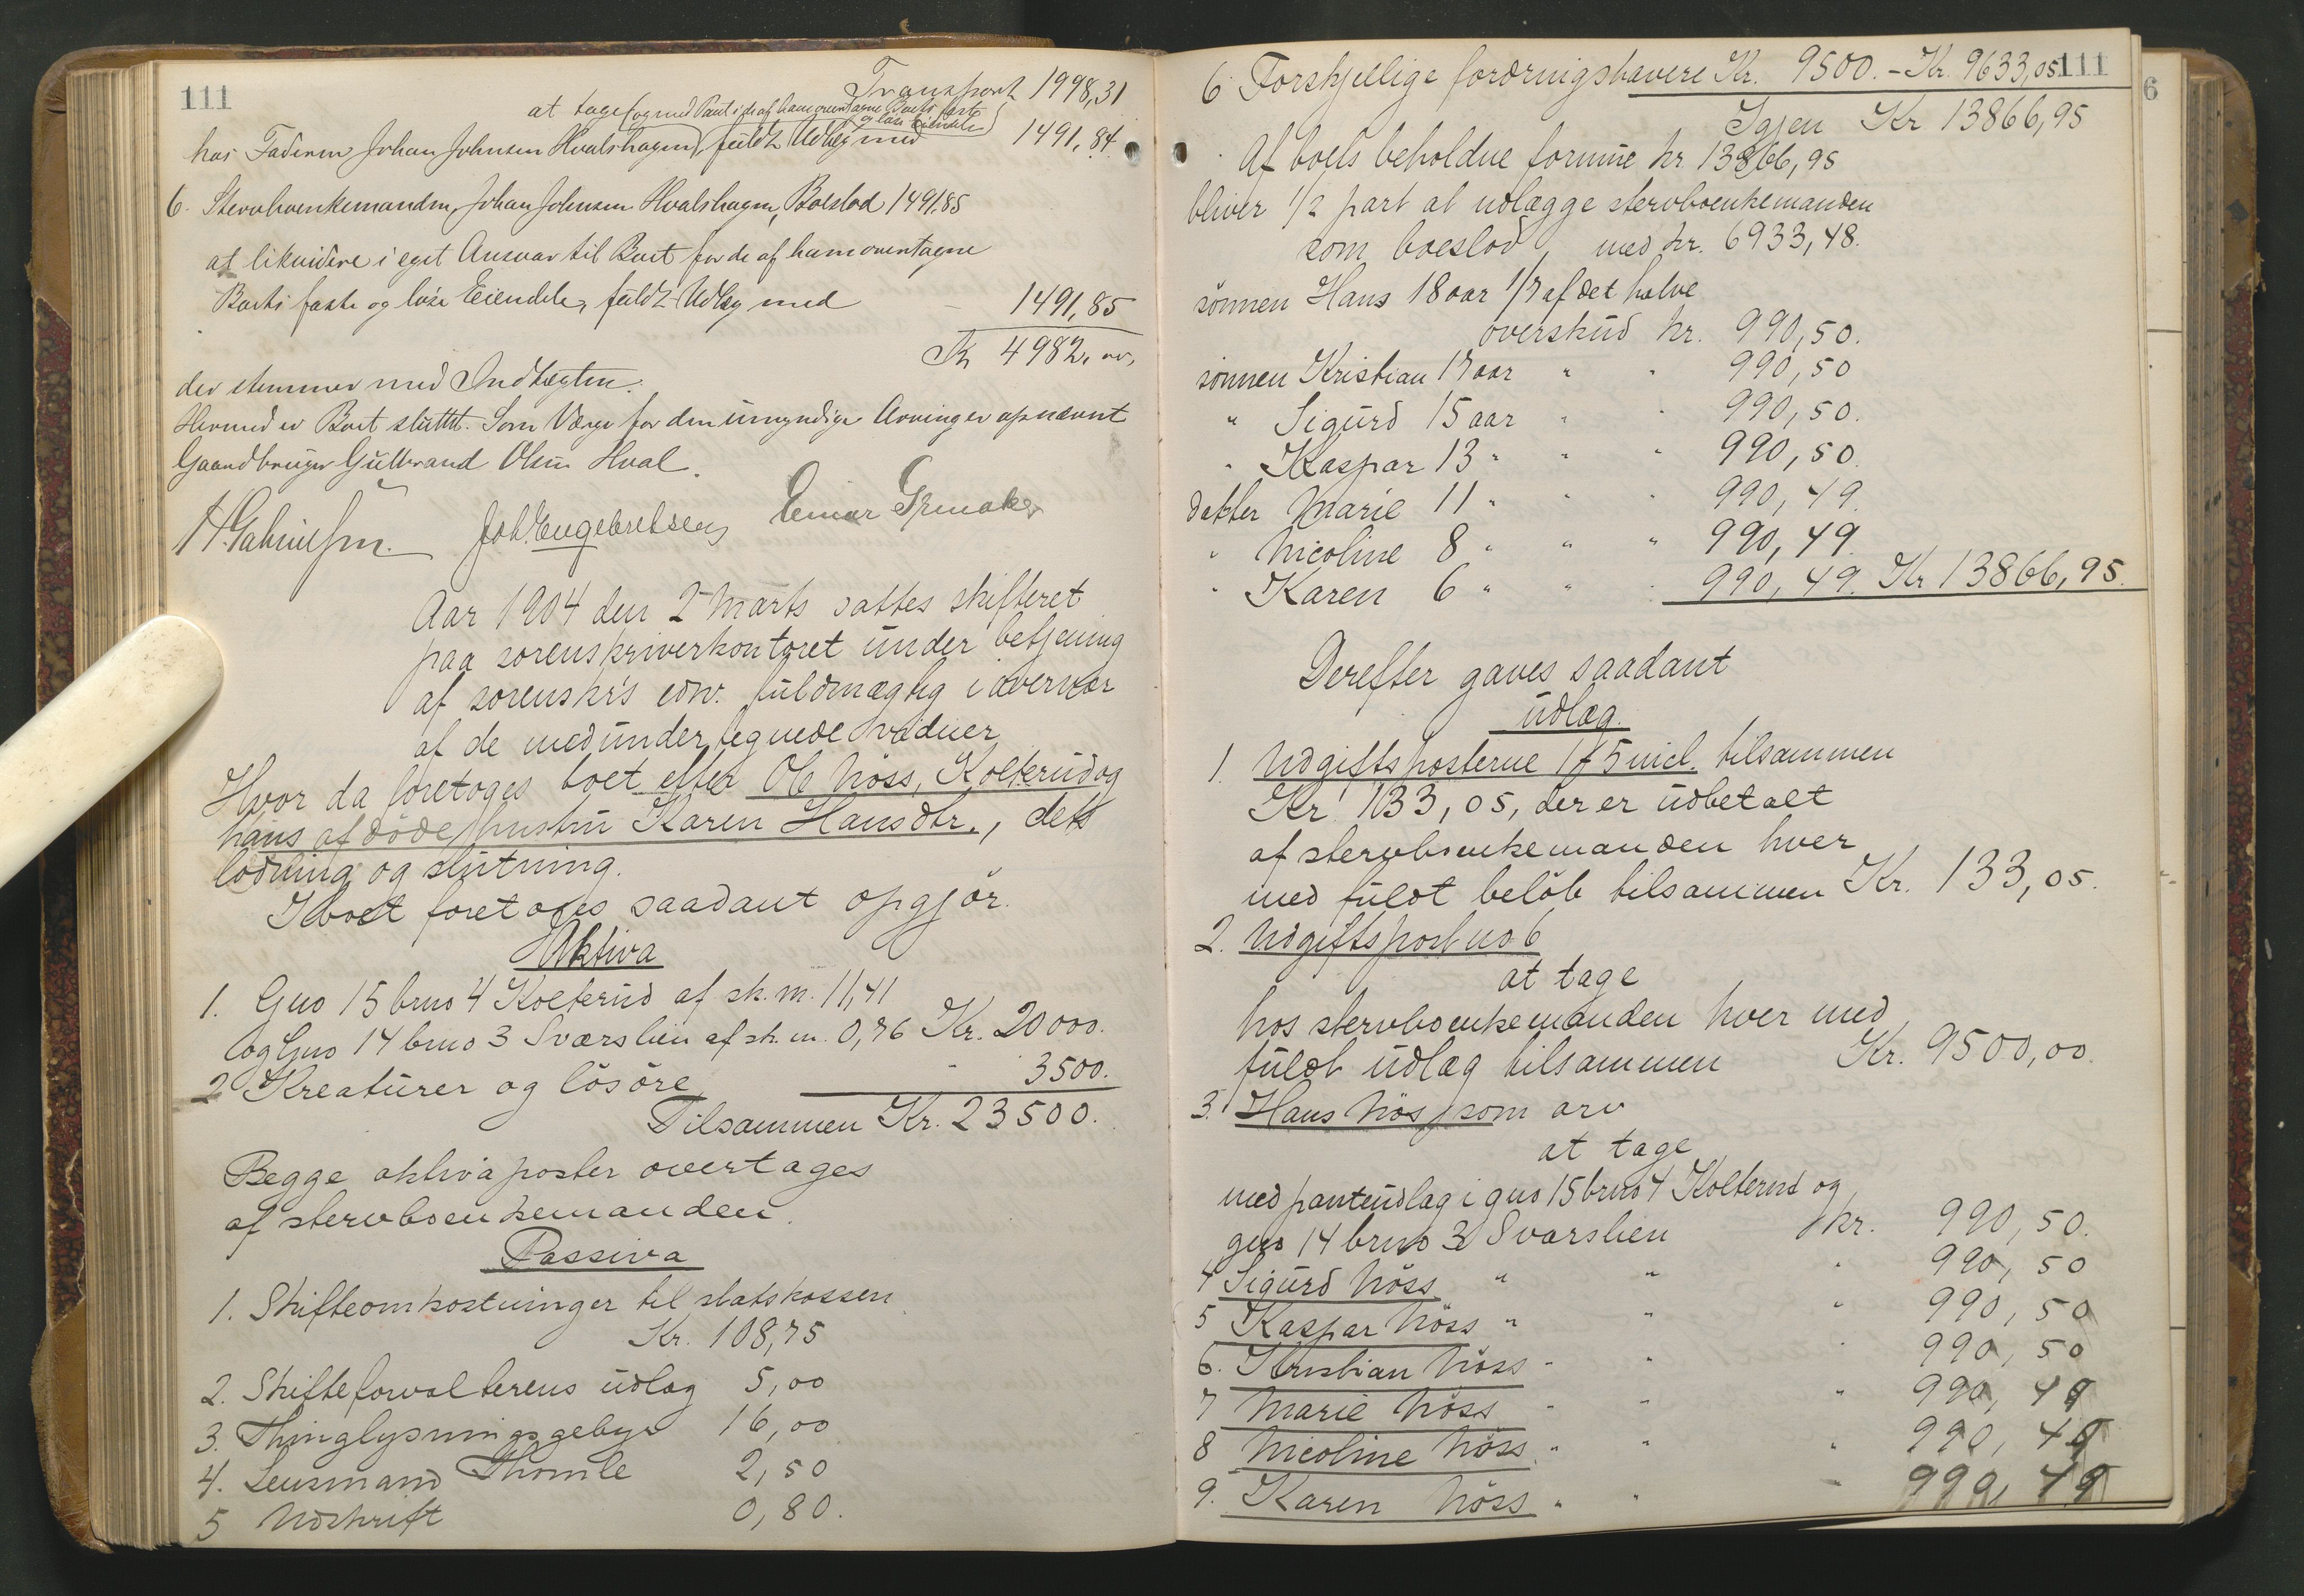 111
Transport 1998,31
at tage (og med Pant i de af ham overtagne Boets faste
og løse Eiendele)
hos Faderen Johan Johnsen Hvalshagen, fuldt Udlæg med 1491,84
6. Stervboenkemanden, Johan Johnsen Hvalshagen, Boeslod 1491,85
at likvidere i eget Ansvar til Boet for de af ham overtagne
Boets faste og løse Eiendele, fuldt Udlæg med - 1491,85
Kr 4982,00,
der stemmer med Indtægten.
Hermed er Boet sluttet. Som Værge for den umyndige Arving er opnævnt
Gaardbruger Gulbrand Olsen Hval.
Joh. Engebretsen Einar
Aar 1904 den 2 marts sattes skifteret
paa sorenskriverkontoret under betjening
af sorenskr's edsv. fuldmægtig i overvær
af de medundertegnede vidner
Hvor da foretoges boet efter Ole Nöss, Kolterud og
hans afdöde hustru Karen Hansdtr., dets
lodning og slutning.
I boet foretoges saadant opgjör.
Aktiva
1. Gno 15 brno 4 Kolterud af sk. m. 11,41
og Gno 14 brno 3 Sværslien af sk. m. 0,76 Kr. 20000.
2 Kreaturer og lösöre - 3500.
Tilsammen Kr. 23500.
Begge aktivaposter overtages
af stervboenkemanden.
Passiva
1. Skifteomkostninger til statskassen
Kr. 108,75
2. Skifteforvalterens udlæg 5,00
3. Thinglysningsgebyr 16,00
4. Lensmand Thomle 2,50
5 Udskrift 0,80.
111
6
6 Forskjellige fordringshavere Kr. 9500. - Kr. 9633,05
Igjen Kr 13866,95
Af boets beholdne formue kr. 13866,95
bliver 1/2 part at udlægge stervboenkemanden
som boeslod, med kr. 6933,48.
sönnen Hans 18 aar 1/7 af det halve
overskud kr. 990,50.
sönnen Kristian 17 aar " " 990,50
" Sigurd 15 aar " " 990,50.
" Kaspar 13 " " " 990,50.
dakter Marie 11 " " " 990,49.
" Nicoline 8 " " " 990,49.
" Karen 6 " " " 990,49. Kr 13866,95.
Derefter gaves saadant
udlæg.
1. Udgiftsposterne 1 t 5 incl. tilsammen
Kr. 133,05, der er udbetalt
af stervboenkemanden hver
med fuldt belöb tilsammen Kr. 133,05.
2. Udgiftspost no 6
at tage
hos stervboenkemanden hver med
fuldt udlæg tilsammen Kr. 9500,00.
3. Hans Nös, som arv
at tage
med pantudlæg i gno 15 brno 4 Kolterud og
gno 14 brno 3 Sværslien kr. 990,50.
4 Sigurd Nöss " " " 990,50
5 Kaspar Nöss " " " 990,50
6. Kristian Nöss " " " 990,50
7 Marie Nöss " " " 990,49
8 Nicoline Nöss " " " 990,49
9. Karen Nöss " " " 990,49